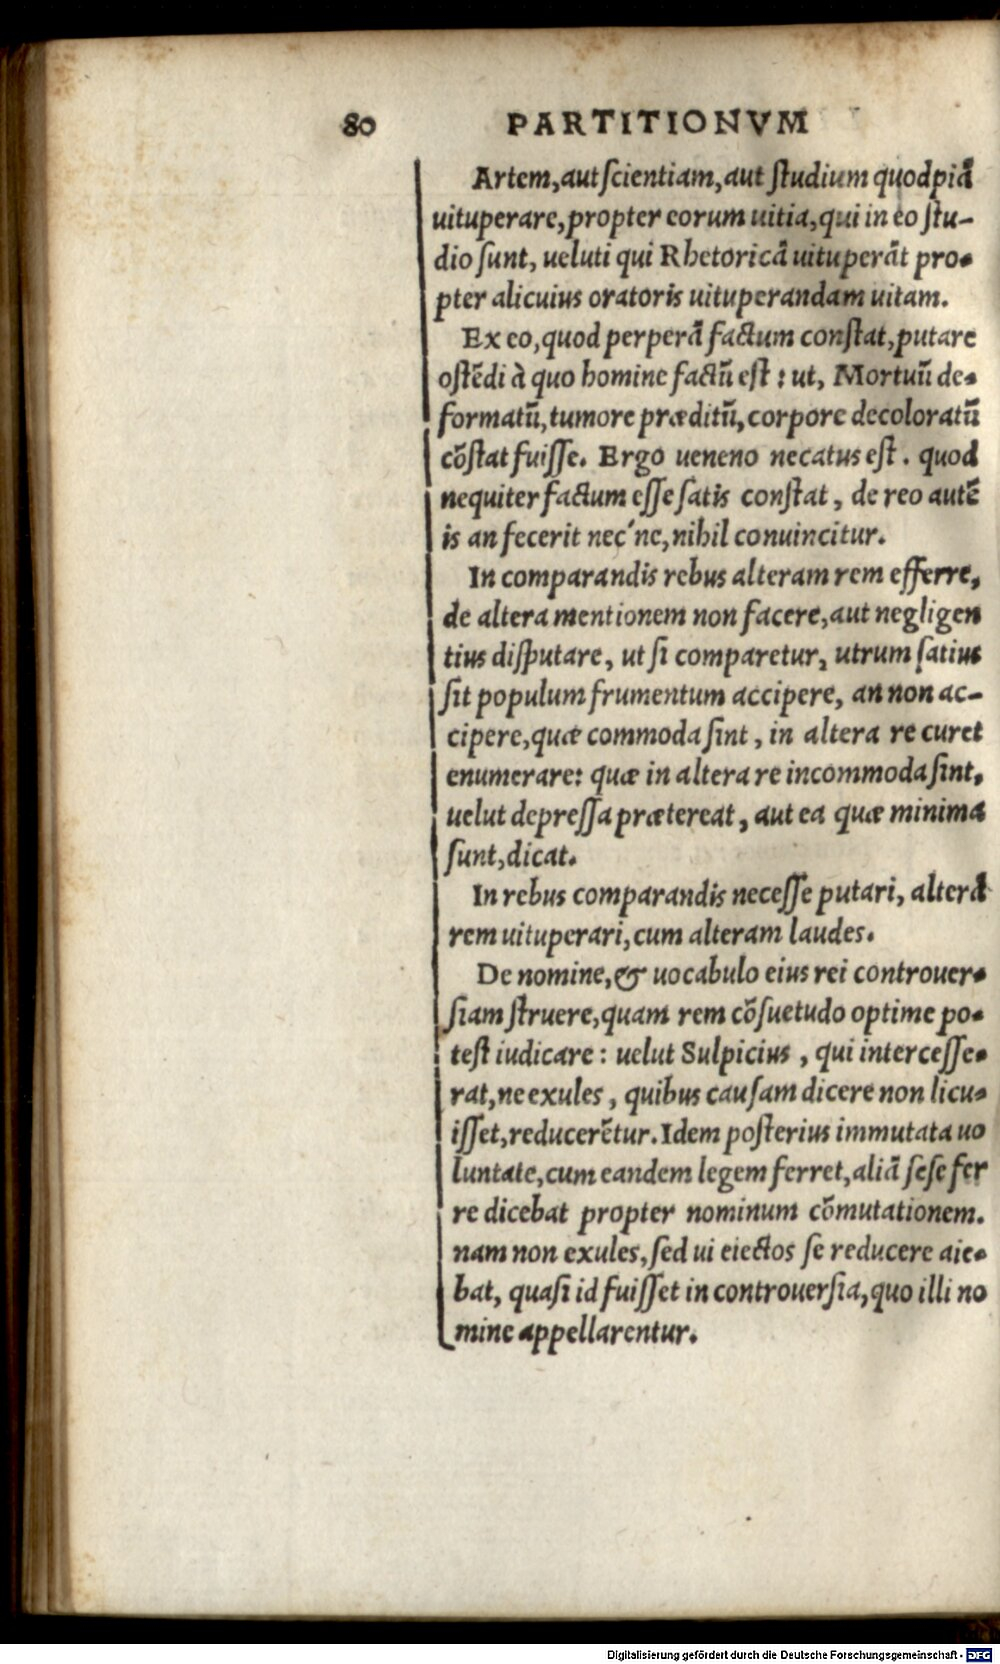 80 PARTITIONVM
Artem, aut scientiam, aut studium quodpiã
uituperare, propter eorum uitia, qui in eo stu-
dio sunt, ueluti qui Rhetoricã uituperãt pro-
pter alicuius oratoris uituperandam uitam.
Ex eo, quod perperã factum constat, putare
ostẽdi à quo homine factũ est: ut, Mortuũ de-
formatũ, tumore præditũ, corpore decoloratũ
cõstat fuisse. Ergo ueneno necatus est. quod
nequiter factum esse satis constat, de reo autẽ
is an fecerit nec'ne, nihil conuincitur.
In comparandis rebus alteram rem efferre,
de altera mentionem non facere, aut negligen
tius disputare, ut si comparetur, utrum satius
sit populum frumentum accipere, an non ac-
cipere, quæ commoda sint, in altera re curet
enumerare: quæ in altera re incommoda sint,
uelut depressa prætereat, aut ea quæ minima
sunt, dicat.
In rebus comparandis necesse putari, alterã
rem uituperari, cum alteram laudes.
De nomine, & uocabulo eius rei controuer-
siam struere, quam rem cõsuetudo optime po-
test iudicare: uelut Sulpicius, qui intercesse-
rat, ne exules, quibus causam dicere non licu-
isset, reducerẽtur. Idem posterius immutata uo
luntate, cum eandem legem ferret, aliã sese fer
re dicebat propter nominum cõmutationem.
nam non exules, sed ui eiectos se reducere aie-
bat, quasi id fuisset in controuersia, quo illi no
mine appellarentur.
Digitalisierung gefördert durch die Deutsche Forschungsgemeinschaft - DFG